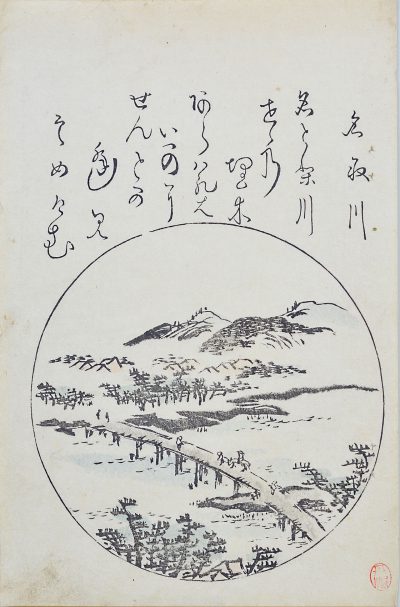 名取川
名とり川
せゝの
埋木
あらハれは
いかに
せんとか
逢見
そめけむ